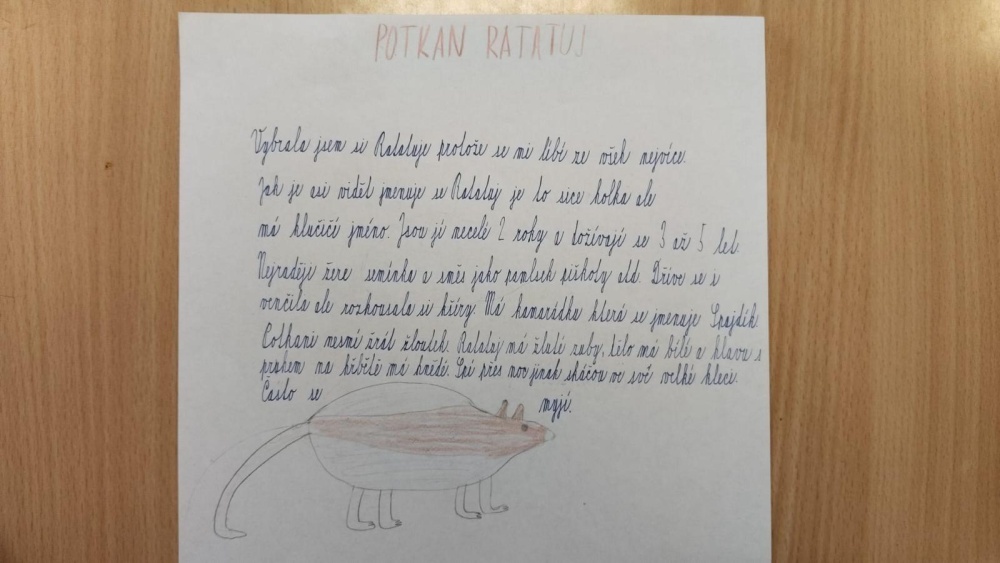 POTKAN RATATUJ
Vybrala jsem si Ratatuje protože se mi líbí ze všek nejvíce.
Jak je asi vidět jmenuje se Ratatuj je to sice holka ale
má klučičí jméno. Jsou jí necelé 2 roky a dožívají se 3 až 5 let.
Nejraději žere semínka a směs jako pamlsek piškoty atd. Dříve se i
venčila ale rozkousala si kšíry. Má kamarádku která se jmenuje Spajdík.
Potkani nesmí žrát žloutek. Ratatuj má žluté zuby, tělo má bílé a hlavu s
pruhem na hřbětě má hnědé. Spí přes noc jinak skáčou ve své velké kleci.
Často se myjí.